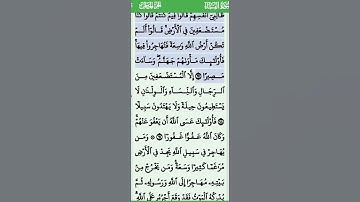 ظَالِمِىٓ أَنفُسِهِمْ قَالُوا۟ فِيمَ كُنتُمْ قَالُوا۟ كُنَّا
مُسْتَضْعَفِينَ فِى ٱلْأَرْضِ قَالُوٓا۟ أَلَمْ
تَكُنْ أَرْضُ ٱللَّهِ وَٰسِعَةً فَتُهَاجِرُوا۟ فِيهَا
فَأُو۟لَـٰٓئِكَ مَأْوَىٰهُمْ جَهَنَّمُ وَسَآءَتْ
مَصِيرًا ٩٧ إِلَّا ٱلْمُسْتَضْعَفِينَ مِنَ
ٱلرِّجَالِ وَٱلنِّسَآءِ وَٱلْوِلْدَٰنِ لَا
يَسْتَطِيعُونَ حِيلَةً وَلَا يَهْتَدُونَ سَبِيلًا
٩٨ فَأُو۟لَـٰٓئِكَ عَسَى ٱللَّهُ أَن يَعْفُوَ عَنْهُمْ
وَكَانَ ٱللَّهُ عَفُوًّا غَفُورًا ٩٩ ۞ وَمَن
يُهَاجِرْ فِى سَبِيلِ ٱللَّهِ يَجِدْ فِى ٱلْأَرْضِ
مُرَٰغَمًا كَثِيرًا وَسَعَةً وَمَن يَخْرُجْ مِنۢ
بَيْتِهِۦ مُهَاجِرًا إِلَى ٱللَّهِ وَرَسُولِهِۦ ثُمَّ
يُدْرِكْهُ ٱلْمَوْتُ فَقَدْ وَقَعَ أَجْرُهُۥ عَلَى ٱللَّهِ